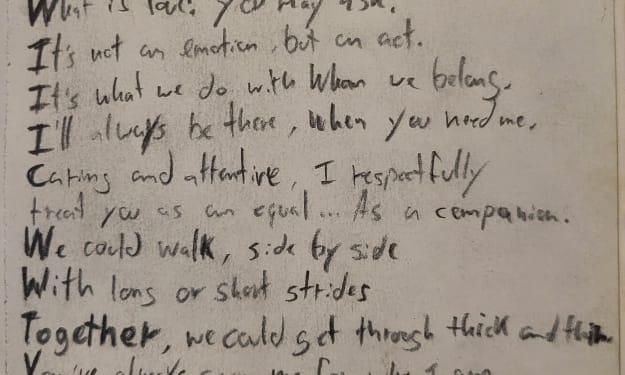 What is love? You may ask.
It's not an emotion, but an act.
It's what we do with whom we belong.
I'll always be there, when you need me.
Caring and attentive, I respectfully
treat you as an equal... As a companion.
We could walk, side by side
With long or short strides
Together, we could get through thick and thin.
You've always seen me for who I am